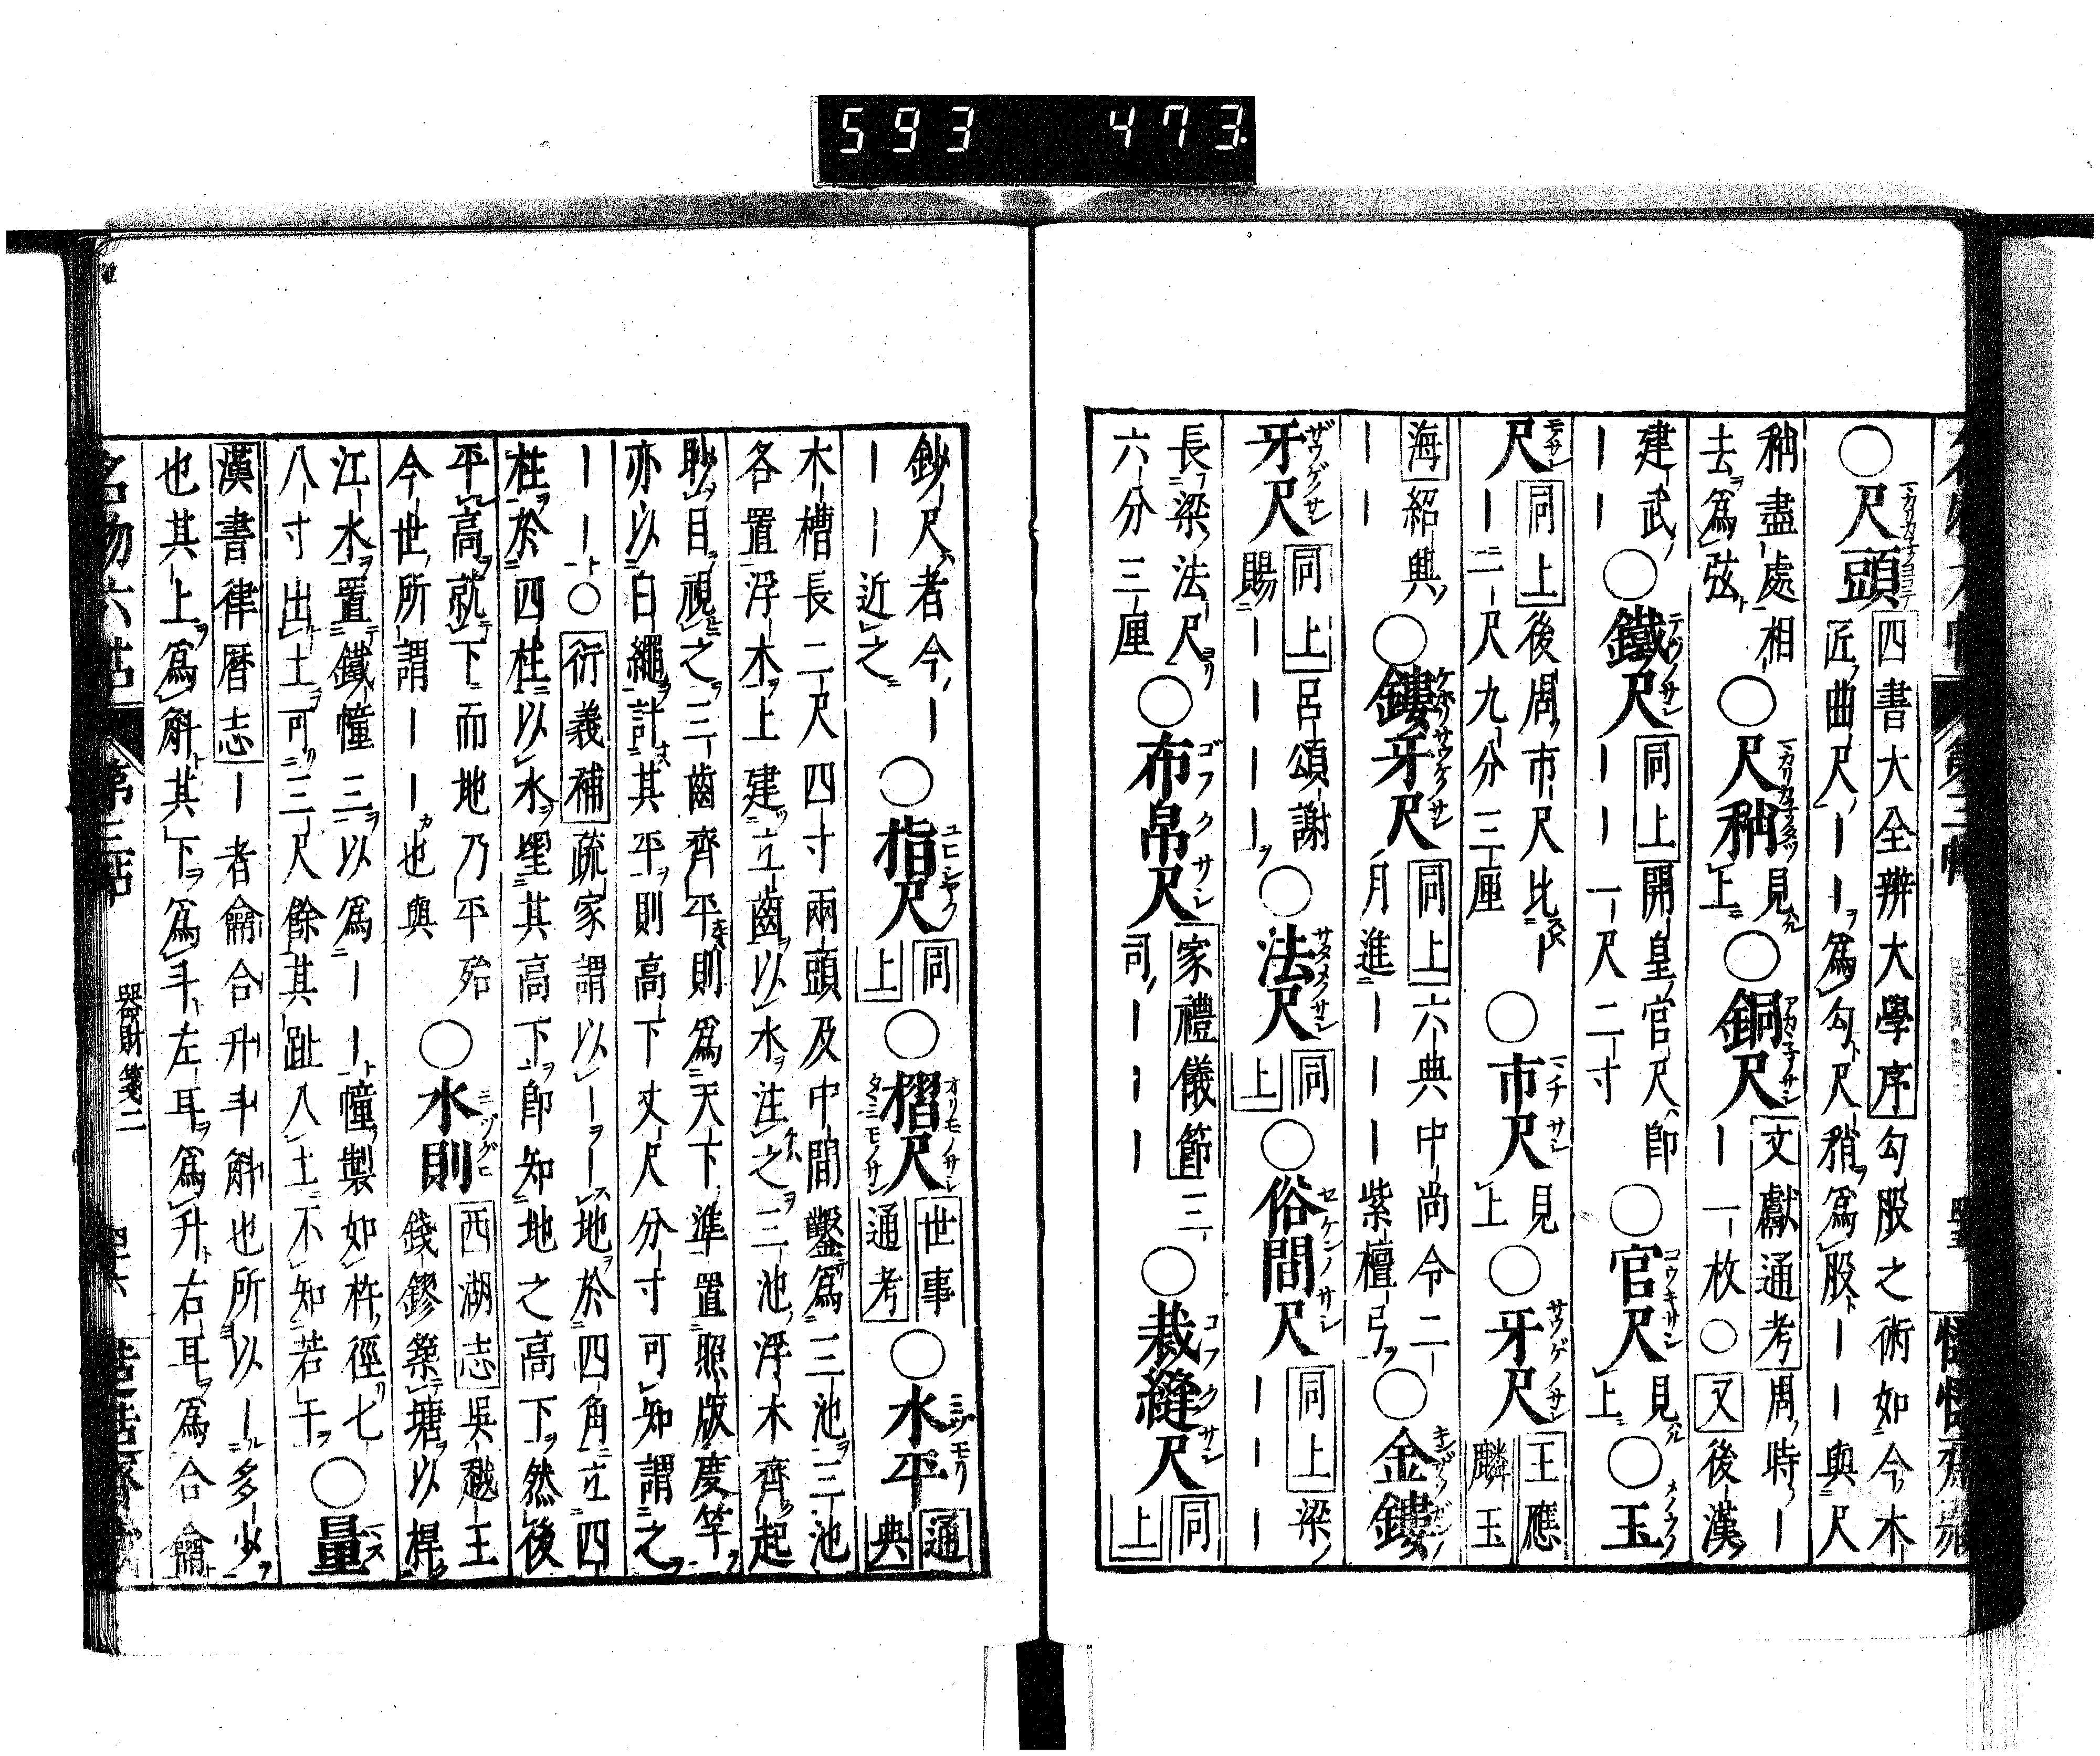 ○尺頭 四書大全辨大學序勾股之術如今木
匠曲尺——爲勾尺稍爲股——與尺
稍盡處相
去爲弦
○尺稍 見上 ○銅尺 文獻通考周時—
—一枚○又後漢
建武
——
○鐵尺 同上開皇官尺即
——一尺二寸
○官尺 見上 ○玉
尺 同上後周市尺比—
—二尺九分三厘
○市尺 見上 ○牙尺 王應
麟玉
海紹興
——
○鏤牙尺 同上六典中尚令二
月進———紫檀弓
○金鏤
牙尺 同上呂頌謝
賜————
○法尺 同上 ○俗間尺 同上梁
———
長梁法尺
六分三厘
○布帛尺 家禮儀節三
司————
○裁縫尺 同上
鈔尺者今—
——近之
○指尺 同上 ○摺尺 世事
通考
○水平 通
典
木槽長二尺四寸兩頭及中間鑿爲三池三池
各置浮木上建立齒以水注之三池浮木齊起
眇目視之三齒齊平則爲天下準置照版度竿
亦以白繩計其平則高下丈尺分寸可知謂之
——○衍義補疏家謂以——地於四角立四
柱於四柱以水望其高下即知地之高下然後
平高就下而地乃平殆
今世所謂——也與
○水則 西湖志吳越王
錢鏐築塘以捍
江水置鐵幢三以爲——幢製如杵徑七
八寸出土可三尺餘其趾入土不知若干
○量
漢書律暦志—者龠合升斗斛也所以—多少
也其上爲斛其下爲斗左耳爲升右耳爲合龠
器財箋二
593 473